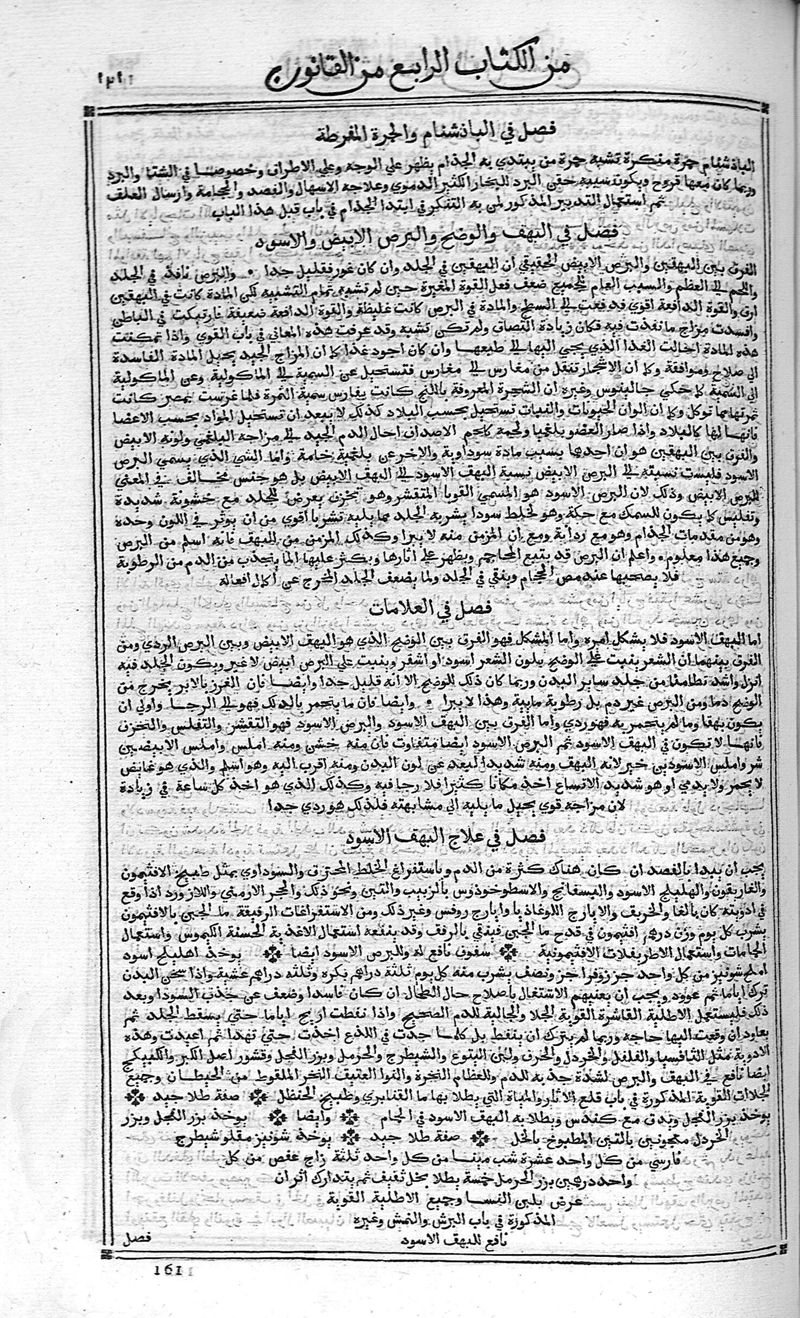 من الكتاب الرابع من القانون
فصل في الباذشنام والحمرة المفرطة
الباذشنام حمرة منكرة تشبه حمرة من يبتدي به الجذام يظهر على الوجه وعلى الاطراف وخصوصا في الشتا والبرد
وربما كان معها قروح ويكون سببه حقن البرد للبخار الكثير الدموي وعلاجه الاسهال والفصد والحجامة وارسال العلف
ثم استعمال التدبير المذكور لمن به التفكر في ابتدا الجذام في باب قبل هذا الباب
فصل في البهف والوضح والبرص الابيض والاسود
الفرق بين البهقين والبرص الابيض الحقيقي ان البهقين في الجلد وان كان غور فقليل جدا والبرص نافذ في الجلد
واللحم الى العظم والسبب العام للجميع ضعف فعل القوة المغيرة حين لم تشبه تمام التشبيه لكن المادة كانت في البهقين
ارق والقوة الدافعة اقوي فدفعت الى السطح والمادة في البرص كانت غليظة والقوة الدافعة ضعيفة فارتبكت في الباطن
وافسدت مزاج ما نفذت فيه فكان زيادة التصاق ولم تكن تشبه وقد عرفت هذه المعاني في باب القوي واذا تمكنت
هذه المادة احالت الغذا الذي يجي اليها الى طبعها وان كان اجود غذا كما ان المزاج الجيد يحيل المادة الفاسدة
الى صلاح وموافقة وكما ان الاشجار تنقل من مغارس الى مغارس فتستحيل عن السمية الى الماكولية وعن الماكولية
الى السمية كما حكي جالينوس وغيره ان الشجرة المعروفة باللبخ كانت بفارس سمية الثمرة فلما غرست بمصر كانت
ثمرتها مما توكل وكما ان الوان الحيوانات والنبات تستحيل بحسب البلاد كذلك لا يبعد ان تستحيل المواد بحسب الاعضا
فانها لها كالبلاد واذا صار العضو بلغميا ولحمه كلحم الاصداف احال الدم الجيد الى مزاجه البلغمي ولونه الابيض
والفرق بين البهقين هو ان احدهما بسبب مادة سوداوية والاخر عن بلغمية خامة واما الشي الذي يسمي البرص
الاسود فليست نسبته الى البرص الابيض نسبة البهف الاسود الى البهف الابيض بل هو جنس مخالف في المعني
للبرص الابيض وذلك لان البرص الاسود هو المسمي القوبا المتقشر وهو تخزف يعرض للجلد مع خشونة شديدة
وتفليس كما يكون للسمك مع حكة وهو لخلط سودا يشربه الجلد مما يليه تشربا اقوي من ان يوثر في اللون وحده
وهو من مقدمات الجذام وهو مع رداية ومع ان المزمن منه لا يبرا وكذلك المزمن من البهف فانه اسلم من البرص
وجميع هذا معلوم واعلم ان البرص قد يتبع المحاجم ويظهر على اثارها ويكثر عليها الما ينجذب من الدم من الرطوبة
فلا يصحبها عند مص المحجام ويبقي في الجلد ولما يضعف الجلد المخرج عن اكمال افعاله
فصل في العلامات
اما البهف الاسود فلا يشكل امره واما المشكل فهو الفرق بين الوضح الذي هو البهف الابيض وبين البرص الردي ومن
الفرق بينهما ان الشعر ينبت على الوضح بلون الشعر اسود او اشقر وينبت على البرص ابيض لا غير ويكون الجلد فيه
انزل واشد تطامنا من جلد ساير البدن وربما كان ذلك للوضح الا انه قليل جدا وايضا فان الغرز بالابر يخرج من
الوضح دما ومن البرص غير دم بل رطوبة مايية وهذا لا يبرا وايضا فان ما يتحمر بالدلك فهو الى الرجا واولي ان
يكون بهقا وما لم يتحمر به فهو ردي واما الفرق بين البهف الاسود والبرص الاسود فهو التقشر والتفلس والتخزف
فانها لا تكون في البهف الاسود ثم البرص الاسود ايضا متفاوت فان منه خشن ومنه املس واملس الابيضين
شر واملس الاسودين خير لانه البهف ومنه شديد البعد عن لون البدن ومنه اقرب اليه وهو اسلم والذي هو غايص
لا يحمر ولا يدمي او هو شديد الاتساع اخذ مكانا كثيرا فلا رجا فيه وكذلك الذي هو اخذ كل ساعة في زيادة
لان مزاجه قوي يحيل ما يليه الى مشابهته فلذلك هو ردي جدا
فصل في علاج البهف الاسود
يجب ان يبدا بالفصد ان كان هناك كثرة من الدم وباستفراغ الخلط المحترق والسوداوي بمثل طبيخ الافتيمون
والغاريقون والهليلج الاسود والبسفانج والاسطوخودوس بالزبيب والتين ونحو ذلك والحجر الارمني واللازورد اذا وقع
في ادويته كان بالغا والخربف والايارج اللوغاذيا وايارج روفس وغير ذلك ومن الاستفراغات الرفيعة ما الجبن بالافتيمون
يشرب كل يوم وزن درهم افتيمون في قدح ما الجبن فينقي بالرفف وقد ينفعه استعمال الاغذية الحسنة الكيموس واستعمال
الحمامات واستعمال الاطريفلات الافتيمونية سفوف نافع له وللبرص الاسود ايضا يوخذ اهليلج اسود
املج شونيز من كل واحد جز زوفرا جز ونصف يشرب منه كل يوم ثلثة دراهم بكرة وثلثه دراهم عشية واذا سخن البدن
ترك اياما ثم عوود ويجب ان يعنيهم الاشتغال باصلاح حال الطحال ان كان فاسدا وضعف عن جذب السودا وبعد
ذلك فليستعمل الاطلية القاشرة القوية الجلا والجالبة للدم الصحيح واذا نفطت اريح اياما حتي يسقط الجلد ثم
يعاود ان وقعت اليها حاجة وربما لم يترك ان ينفط بل كلما جدت في اللذع اخذت حتي تهدا ثم اعيدت وهذه
الادوية مثل الثافسيا والفلفل والخردل والحرف ولبن اليتوع والشيطرج والحرمل وبزر الفجل وقشور اصل الكبر والكبيكج
ايضا نافع في البهف والبرص لشدة جذبه للدم والعظام النخرة والفوا العتيف النخر الملقوط من الحيطان وجميع
الجلات القوية المذكورة في باب قلع الاثار والمياه التي يطلا بها ما القنابري وطبيخ الحنظل صفة طلا جيد
يوخذ بزر الفجل ويدق مع كندس ويطلا به البهف الاسود في الحمام وايضا يوخذ بزر الفجل وبزر
الخردل معجونين بالتين المطبوخ بالخل صفة طلا جيد يوخذ شونيز مقلو شيطرج
فارسي من كل واحد عشرة شب مبنفا من كل واحد ثلثة زاج عفص من كل
واحد درهمين بزر الحرمل خمسة يطلا بخل ثقيف ثم يتدارك اثر ان
عرض بلبن النسا وجميع الاطلية القوية
المذكورة في باب البرش والنمش وغيره
نافع للبهف الاسود
فصل
161